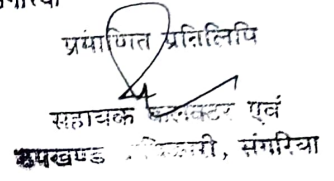 प्रमाणित प्रतिलिपि
सहायक कलक्टर एवं
उपखण्ड अधिकारी, संगरिया